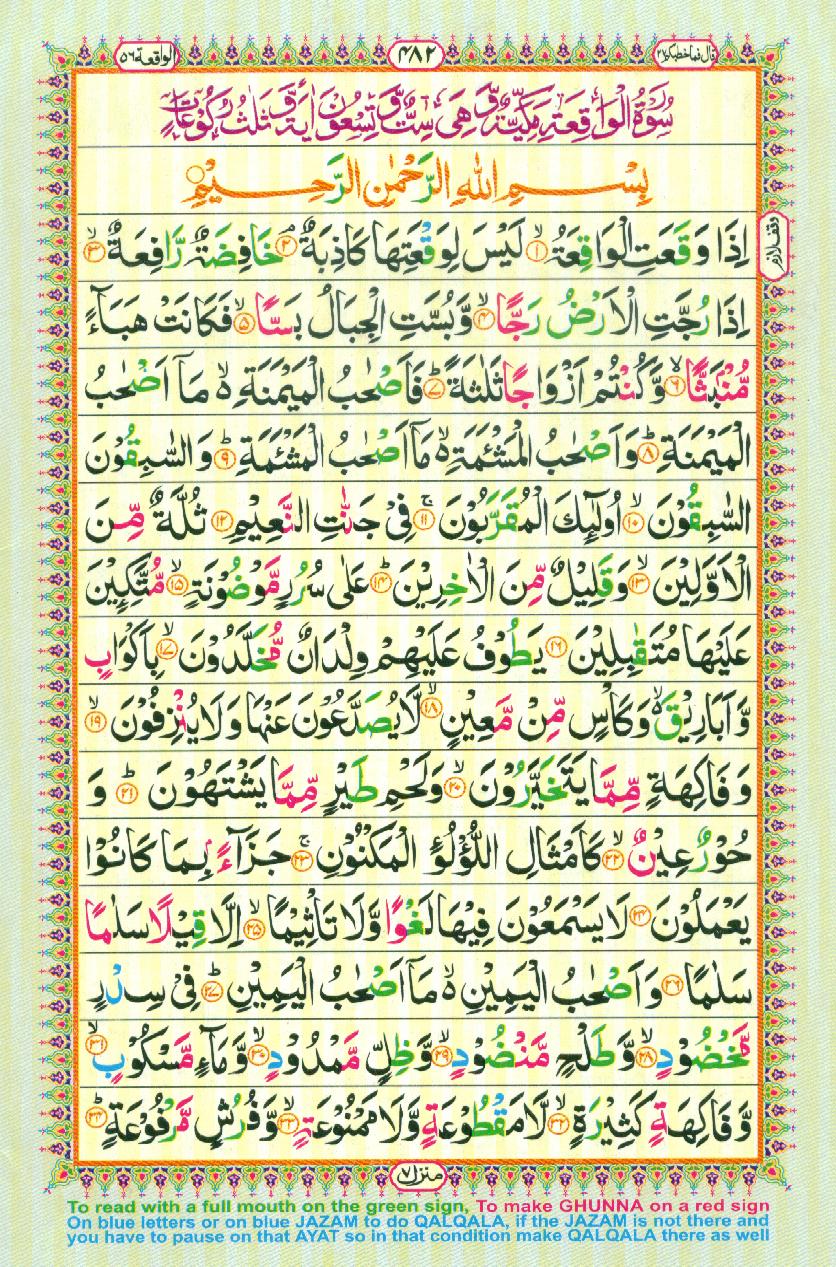 قال فما خطبكم ٢٧
٤٨٢
الواقعة ٥٦
سُوْرَةُ الْوَاقِعَةِ مَكِّيَّةٌ وَّهِىَ سِتٌّ وَّتِسْعُوْنَ اٰيَةً وَّثَلٰثُ رُكُوْعَاتٍ
بِسْمِ اللّٰهِ الرَّحْمٰنِ الرَّحِيْمِ
وقف لازم
اِذَا وَقَعَتِ الْوَاقِعَةُ ۙ‏﴿۱﴾ لَيْسَ لِوَقْعَتِهَا كَاذِبَةٌ ۘ‏﴿۲﴾ خَافِضَةٌ رَّافِعَةٌ ۙ‏﴿۳﴾
اِذَا رُجَّتِ الْاَرْضُ رَجًّا ۙ‏﴿۴﴾ وَّبُسَّتِ الْجِبَالُ بَسًّا ۙ‏﴿۵﴾ فَكَانَتْ هَبَآءً
مُّنْۢبَثًّا ۙ‏﴿۶﴾ وَّكُنْتُمْ اَزْوَاجًا ثَلٰثَةً ؕ‏﴿۷﴾ فَاَصْحٰبُ الْمَيْمَنَةِ ۙ مَاۤ اَصْحٰبُ
الْمَيْمَنَةِ ؕ‏﴿۸﴾ وَاَصْحٰبُ الْمَشْئَمَةِ ۙ مَاۤ اَصْحٰبُ الْمَشْئَمَةِ ؕ‏﴿۹﴾ وَالسّٰبِقُوْنَ
السّٰبِقُوْنَ ۙ‏﴿۱۰﴾ اُولٰٓئِكَ الْمُقَرَّبُوْنَ ۚ‏﴿۱۱﴾ فِىْ جَنّٰتِ النَّعِيْمِ ‏﴿۱۲﴾ ثُلَّةٌ مِّنَ
الْاَوَّلِيْنَ ۙ‏﴿۱۳﴾ وَقَلِيْلٌ مِّنَ الْاٰخِرِيْنَ ؕ‏﴿۱۴﴾ عَلٰى سُرُرٍ مَّوْضُوْنَةٍ ۙ‏﴿۱۵﴾ مُّتَّكِـِٕيْنَ
عَلَيْهَا مُتَقٰبِلِيْنَ ‏﴿۱۶﴾ يَطُوْفُ عَلَيْهِمْ وِلْدَانٌ مُّخَلَّدُوْنَ ۙ‏﴿۱۷﴾ بِاَكْوَابٍ
وَّاَبَارِيْقَ ۙ وَكَاْسٍ مِّنْ مَّعِيْنٍ ۙ‏﴿۱۸﴾ لَّا يُصَدَّعُوْنَ عَنْهَا وَلَا يُنْزِفُوْنَ ۙ‏﴿۱۹﴾
وَفَاكِهَةٍ مِّمَّا يَتَخَيَّرُوْنَ ۙ‏﴿۲۰﴾ وَلَحْمِ طَيْرٍ مِّمَّا يَشْتَهُوْنَ ؕ‏﴿۲۱﴾ وَ
حُوْرٌ عِيْنٌ ۙ‏﴿۲۲﴾ كَاَمْثَالِ اللُّؤْلُـؤِ الْمَكْنُوْنِ ۚ‏﴿۲۳﴾ جَزَآءًۢ بِمَا كَانُوْا
يَعْمَلُوْنَ ‏﴿۲۴﴾ لَا يَسْمَعُوْنَ فِيْهَا لَغْوًا وَّلَا تَاْثِيْمًا ۙ‏﴿۲۵﴾ اِلَّا قِيْلًا سَلٰمًا
سَلٰمًا ‏﴿۲۶﴾ وَاَصْحٰبُ الْيَمِيْنِ ۙ مَاۤ اَصْحٰبُ الْيَمِيْنِ ؕ‏﴿۲۷﴾ فِىْ سِدْرٍ
مَّخْضُوْدٍ ۙ‏﴿۲۸﴾ وَّطَلْحٍ مَّنْضُوْدٍ ۙ‏﴿۲۹﴾ وَّظِلٍّ مَّمْدُوْدٍ ۙ‏﴿۳۰﴾ وَّمَآءٍ مَّسْكُوْبٍ ۙ‏﴿۳۱﴾
وَّفَاكِهَةٍ كَثِيْرَةٍ ۙ‏﴿۳۲﴾ لَّا مَقْطُوْعَةٍ وَّلَا مَمْنُوْعَةٍ ۙ‏﴿۳۳﴾ وَّفُرُشٍ مَّرْفُوْعَةٍ ؕ‏﴿۳۴﴾
منزل ٧
To read with a full mouth on the green sign, To make GHUNNA on a red sign
On blue letters or on blue JAZAM to do QALQALA, if the JAZAM is not there and
you have to pause on that AYAT so in that condition make QALQALA there as well